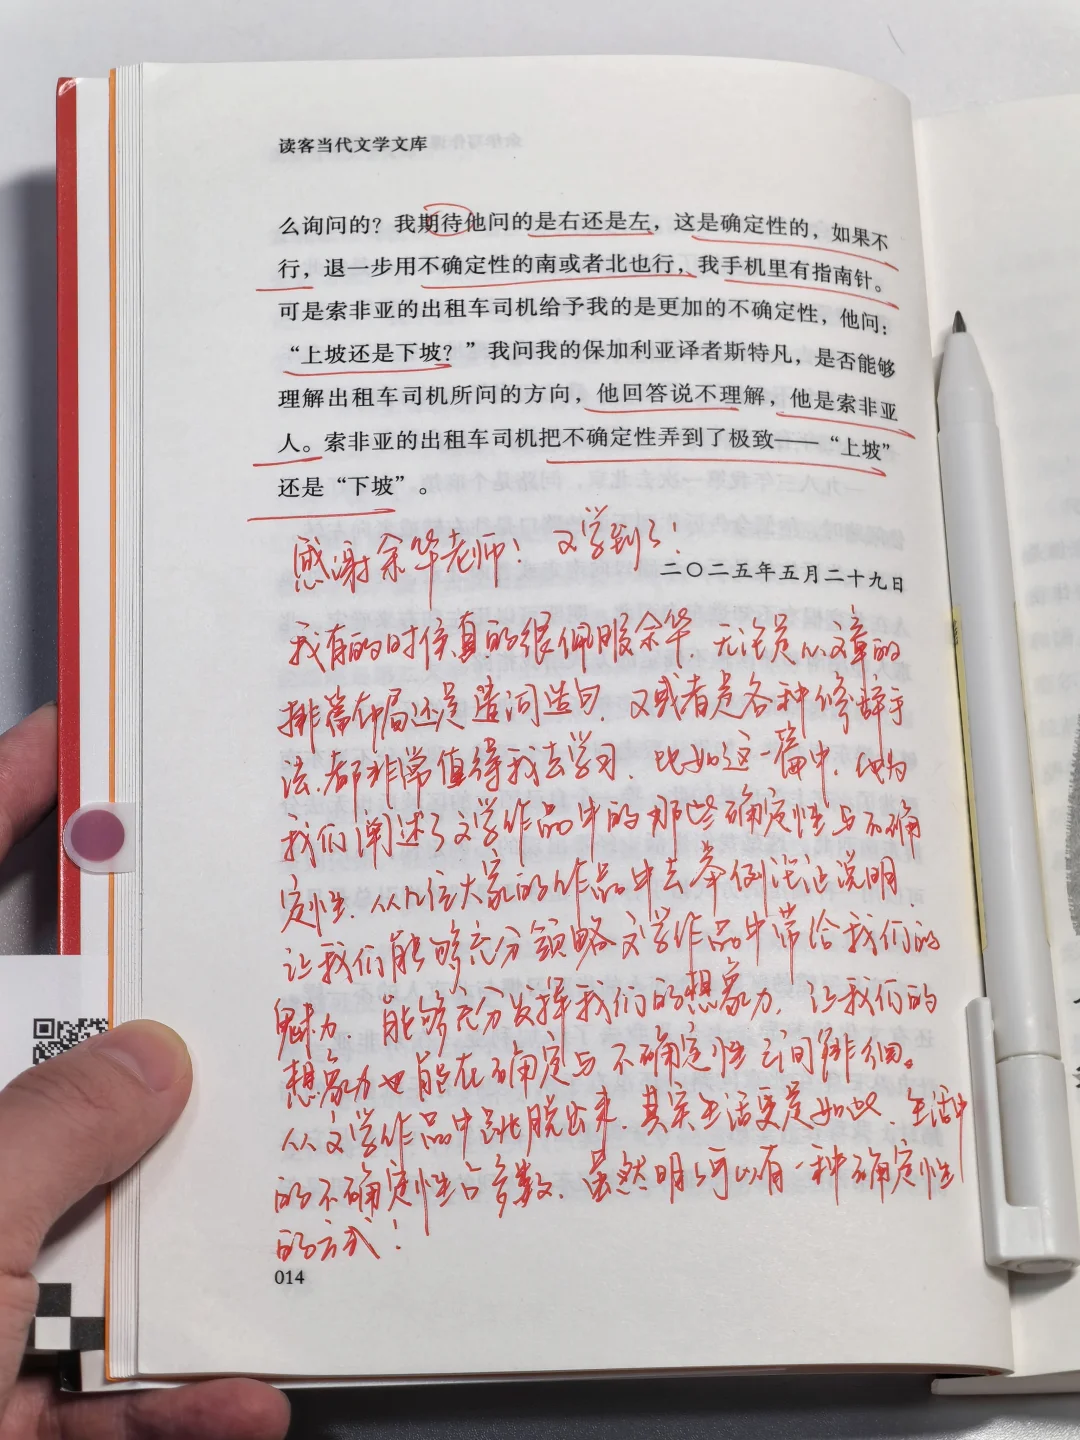 读客当代文学文库
么询问的？我期待他问的是右还是左，这是确定性的，如果不
行，退一步用不确定性的南或者北也行，我手机里有指南针。
可是索非亚的出租车司机给予我的是更加的不确定性，他问：
“上坡还是下坡？”我问我的保加利亚译者斯特凡，是否能够
理解出租车司机所问的方向，他回答说不理解，他是索非亚
人。索非亚的出租车司机把不确定性弄到了极致——“上坡”
还是“下坡”。
感谢余华老师！又学到了！
二〇二五年五月二十九日
我有的时候真的很佩服余华，无论是从文章的
排篇布局还是遣词造句，又或者是各种修辞手
法，都非常值得我去学习，比如这一篇中，他为
我们阐述了文学作品中的那些确定性与不确
定性，从几位大家的作品中去举例论证说明，
让我们能够充分领略文学作品中带给我们的
魅力，能够充分发挥我们的想象力，让我们的
想象力也能在确定与不确定性之间徘徊。
从文学作品中跳脱出来，其实生活更是如此，生活中
的不确定性占多数，虽然明明可以有一种确定性
的方式！
014